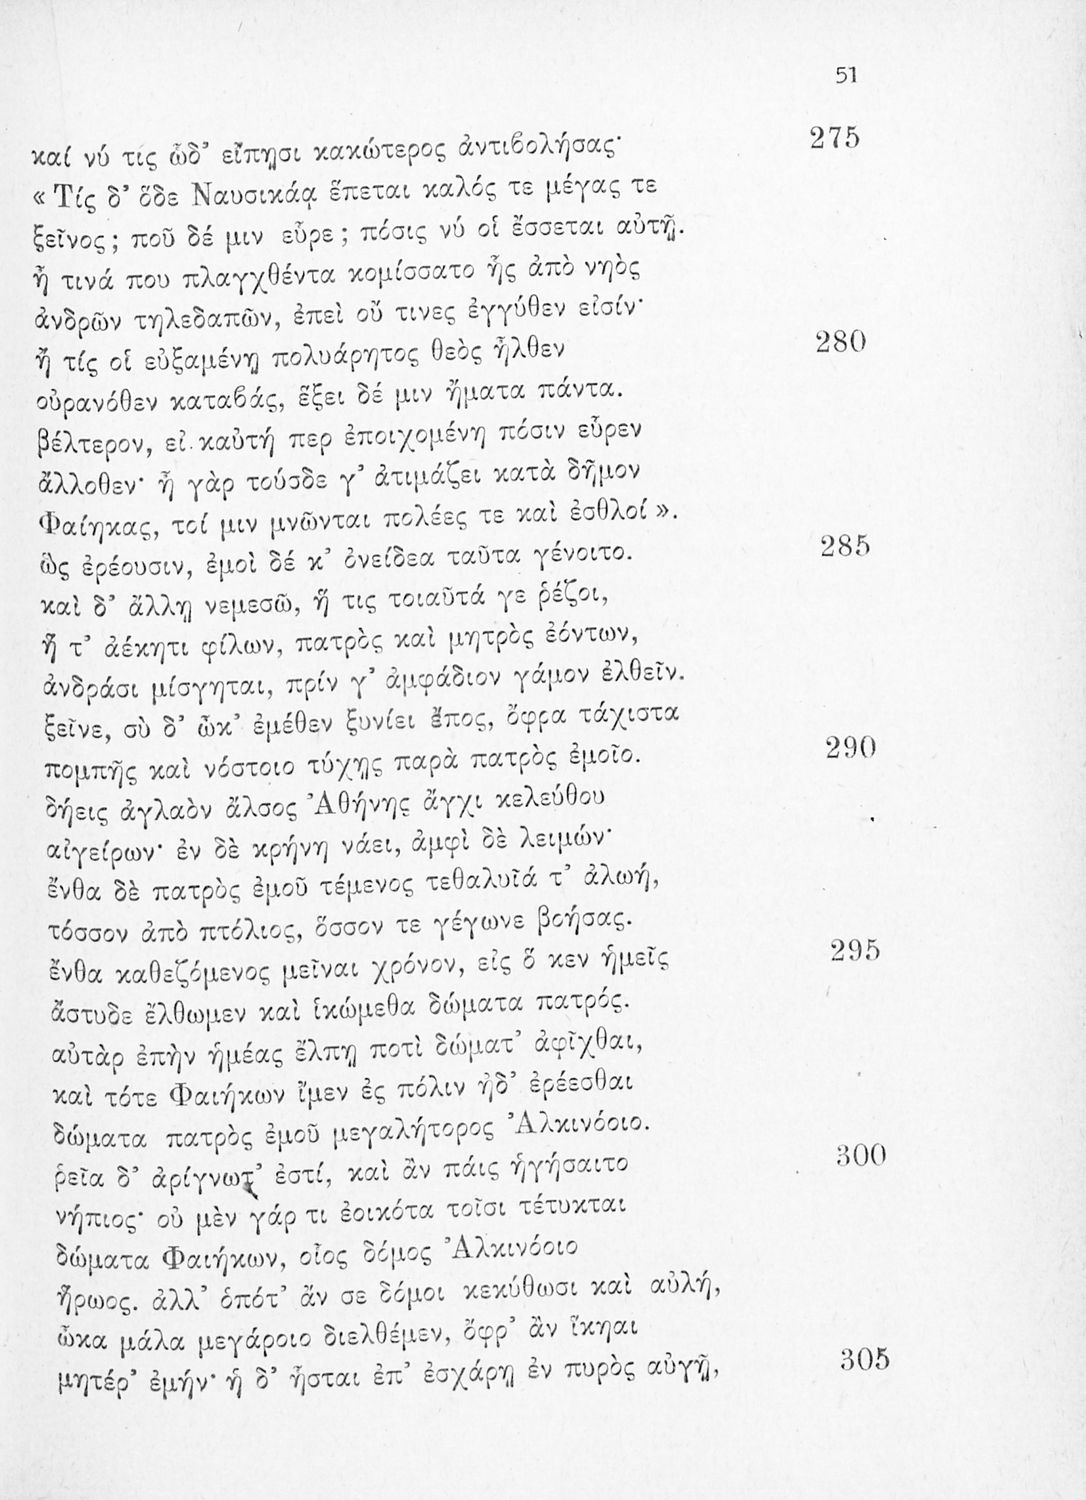 51
καί νύ τις ὧδ’ εἴπῃσι κακώτερος ἀντιβολήσας· 275
« Τίς δ’ ὅδε Ναυσικάᾳ ἕπεται καλός τε μέγας τε
ξεῖνος ; ποῦ δέ μιν εὗρε ; πόσις νύ οἱ ἔσσεται αὐτῇ.
ἦ τινά που πλαγχθέντα κομίσσατο ἧς ἀπὸ νηὸς
ἀνδρῶν τηλεδαπῶν, ἐπεὶ οὔ τινες ἐγγύθεν εἰσίν·
ἤ τίς οἱ εὐξαμένῃ πολυάρητος θεὸς ἦλθεν 280
οὐρανόθεν καταβάς, ἕξει δέ μιν ἤματα πάντα.
βέλτερον, εἰ καὐτή περ ἐποιχομένη πόσιν εὗρεν
ἄλλοθεν· ἦ γὰρ τούσδε γ’ ἀτιμάζει κατὰ δῆμον
Φαίηκας, τοί μιν μνῶνται πολέες τε καὶ ἐσθλοί ».
ὣς ἐρέουσιν, ἐμοὶ δέ κ’ ὀνείδεα ταῦτα γένοιτο. 285
καὶ δ’ ἄλλῃ νεμεσῶ, ἥ τις τοιαῦτά γε ῥέζοι,
ἥ τ’ ἀέκητι φίλων, πατρὸς καὶ μητρὸς ἐόντων,
ἀνδράσι μίσγηται, πρίν γ’ ἀμφάδιον γάμον ἐλθεῖν.
ξεῖνε, σὺ δ’ ὦκ’ ἐμέθεν ξυνίει ἔπος, ὄφρα τάχιστα
πομπῆς καὶ νόστοιο τύχῃς παρὰ πατρὸς ἐμοῖο. 290
δήεις ἀγλαὸν ἄλσος Ἀθήνης ἄγχι κελεύθου
αἰγείρων· ἐν δὲ κρήνη νάει, ἀμφὶ δὲ λειμών·
ἔνθα δὲ πατρὸς ἐμοῦ τέμενος τεθαλυῖά τ’ ἀλωή,
τόσσον ἀπὸ πτόλιος, ὅσσον τε γέγωνε βοήσας.
ἔνθα καθεζόμενος μεῖναι χρόνον, εἰς ὅ κεν ἡμεῖς 295
ἄστυδε ἔλθωμεν καὶ ἱκώμεθα δώματα πατρός.
αὐτὰρ ἐπὴν ἡμέας ἔλπῃ ποτὶ δώματ’ ἀφῖχθαι,
καὶ τότε Φαιήκων ἴμεν ἐς πόλιν ἠδ’ ἐρέεσθαι
δώματα πατρὸς ἐμοῦ μεγαλήτορος Ἀλκινόοιο.
ῥεῖα δ’ ἀρίγνωτ’ ἐστί, καὶ ἂν πάις ἡγήσαιτο 300
νήπιος· οὐ μὲν γάρ τι ἐοικότα τοῖσι τέτυκται
δώματα Φαιήκων, οἷος δόμος Ἀλκινόοιο
ἥρωος. ἀλλ’ ὁπότ’ ἄν σε δόμοι κεκύθωσι καὶ αὐλή,
ὦκα μάλα μεγάροιο διελθέμεν, ὄφρ’ ἂν ἵκηαι
μητέρ’ ἐμήν· ἡ δ’ ἧσται ἐπ’ ἐσχάρῃ ἐν πυρὸς αὐγῇ, 305